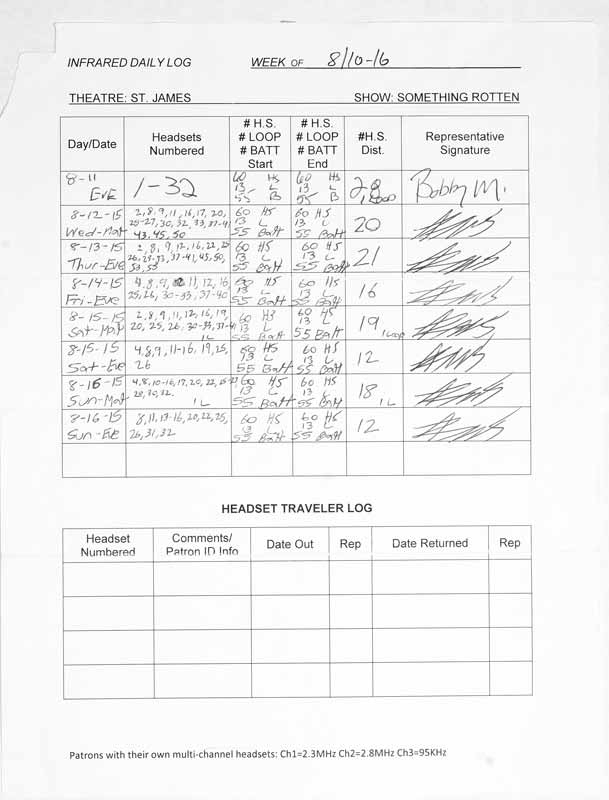 INFRARED DAILY LOG WEEK OF 8/10-16
THEATRE: ST. JAMES SHOW: SOMETHING ROTTEN
Day/Date Headsets Numbered # H.S. # LOOP # BATT Start # H.S. # LOOP # BATT End #H.S. Dist. Representative Signature
8-11 Eve 1-32 60 HS 13 L 55 B 60 HS 13 L 55 B 28 Bobby M.
8-12-15 Wed-Mat 2, 8, 9, 11, 16, 17, 20, 25-27, 30, 32, 33, 37-41 43, 45, 50 60 HS 13 L 55 Batt 60 HS 13 L 55 Batt 20
8-13-15 Thur-Eve 2, 8, 9, 12, 16, 22, 25 37-41, 45, 50, 53, 55 60 HS 13 L 55 Batt 60 HS 13 L 55 Batt 21
8-14-15 Fri-Eve 4, 8, 9, 11, 12, 16 25, 26, 30-33, 37-40 60 HS 13 L 55 Batt 60 HS 13 L 55 Batt 16
8-15-15 Sat-Mat 2, 8, 9, 11, 12, 16, 19, 20, 25, 26, 30-33, 37-41 1L 60 HS 13 L 55 Batt 60 HS 13 L 55 Batt 19 1 Loop
8-15-15 Sat-Eve 4, 8, 9, 11-16, 19, 25, 26 60 HS 13 L 55 Batt 60 HS 13 L 55 Batt 12
8-16-15 Sun-Mat 4, 8, 10-16, 17, 20, 22, 25-27 28, 30, 32. 1L 60 HS 13 L 55 Batt 60 HS 13 L 55 Batt 18 1L
8-16-15 Sun-Eve 8, 11, 13-16, 20, 22, 25, 26, 31, 32 60 HS 13 L 55 Batt 60 HS 13 L 55 Batt 12
HEADSET TRAVELER LOG
Headset Numbered Comments/ Patron ID Info Date Out Rep Date Returned Rep
Patrons with their own multi-channel headsets: Ch1=2.3MHz Ch2=2.8MHz Ch3=95KHz